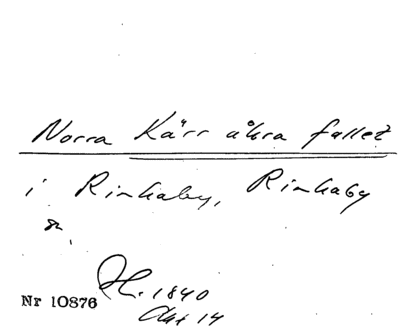 Norra Kärr åkra fallet
i Rinkaby, Rinkaby
H. 1840
Nr 10876
Akt 14